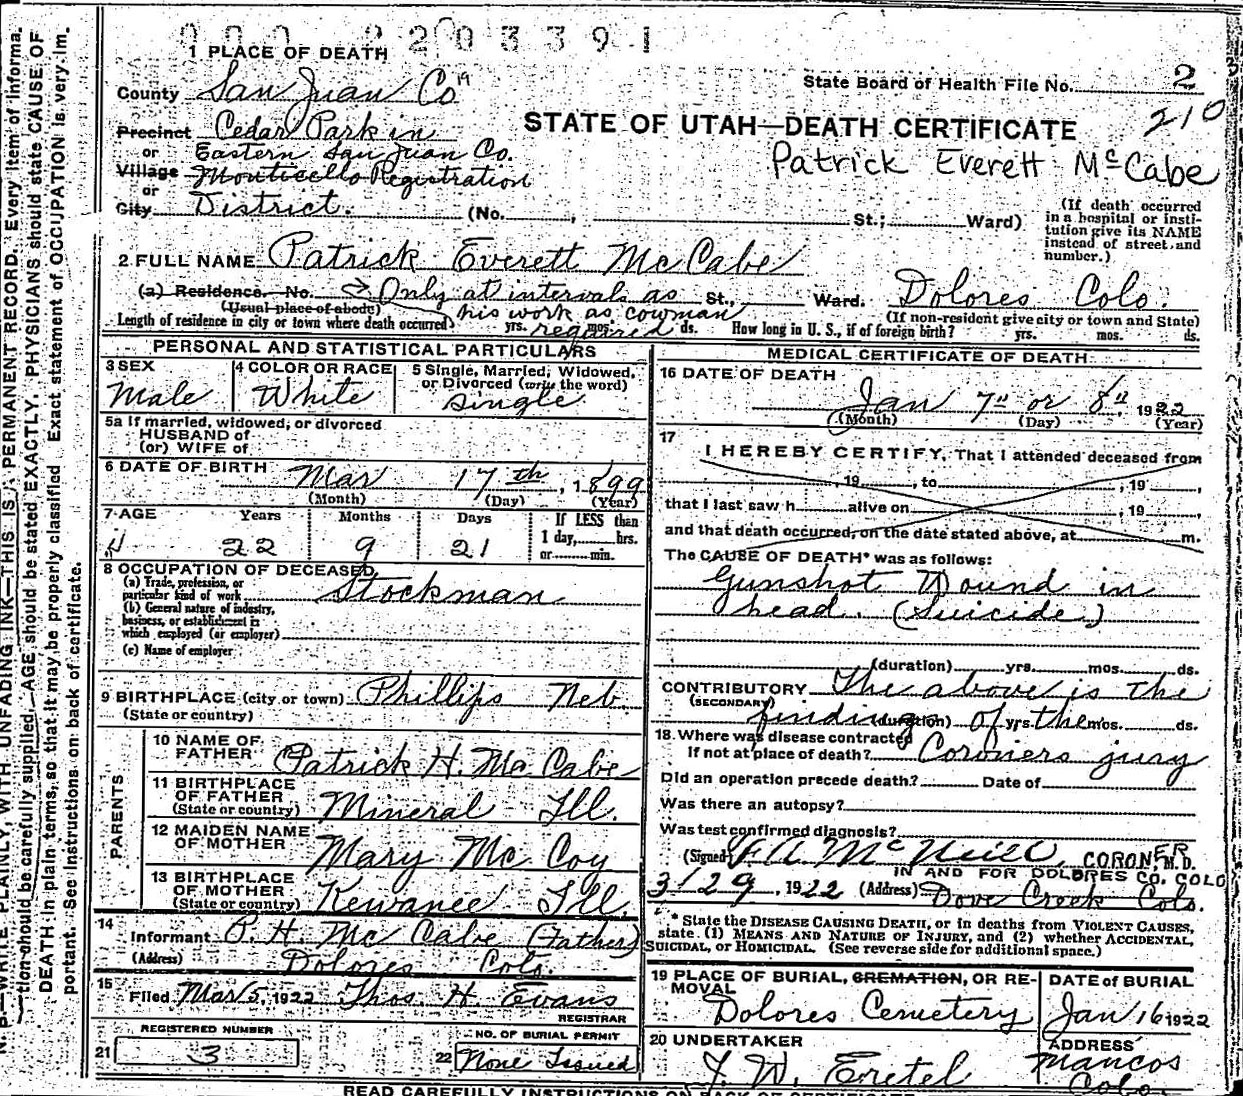 000 2203391
1 PLACE OF DEATH
State Board of Health File No. 2
210
County San Juan Co
STATE OF UTAH—DEATH CERTIFICATE
Precinct Cedar Park in
or Eastern San Juan Co.
Patrick Everett McCabe
Village Monticello Registration
or
City District. (No. , St.; Ward)
(If death occurred in a hospital or insti-
tution give its NAME
instead of street and
number.)
2 FULL NAME Patrick Everett McCabe
(a) Residence. No. Only at intervals as St., Ward. Dolores Colo.
(Usual place of abode) his work as cowman (If non-resident give city or town and State)
Length of residence in city or town where death occurred yrs. required mos. ds. How long in U. S., if of foreign birth? yrs. mos. ds.
PERSONAL AND STATISTICAL PARTICULARS
3 SEX Male
4 COLOR OR RACE White
5 Single, Married, Widowed,
or Divorced (write the word)
Single
5a If married, widowed, or divorced
HUSBAND of
(or) WIFE of
6 DATE OF BIRTH Mar 17th, 1899
(Month) (Day) (Year)
7 AGE Years Months Days If LESS than
1 day, hrs.
or min.
22 9 21
8 OCCUPATION OF DECEASED
(a) Trade, profession, or
particular kind of work Stockman
(b) General nature of industry,
business, or establishment in
which employed (or employer)
(c) Name of employer
9 BIRTHPLACE (city or town) Phillips Neb.
(State or country)
PARENTS
10 NAME OF
FATHER Patrick H. McCabe
11 BIRTHPLACE
OF FATHER
(State or country) Mineral Ill.
12 MAIDEN NAME
OF MOTHER Mary McCoy
13 BIRTHPLACE
OF MOTHER
(State or country) Kewanee Ill.
14
Informant P. H. McCabe (Father)
(Address) Dolores Colo.
15
Filed Mar 5, 1922 Thos. H. Evans
REGISTRAR
REGISTERED NUMBER
21 3
NO. OF BURIAL PERMIT
22 None Issued
MEDICAL CERTIFICATE OF DEATH
16 DATE OF DEATH
Jan 7" or 8", 1922
(Month) (Day) (Year)
17
I HEREBY CERTIFY, That I attended deceased from
, 19 , to , 19 ,
that I last saw h alive on , 19 ,
and that death occurred, on the date stated above, at m.
The CAUSE OF DEATH* was as follows:
Gunshot Wound in
head. (Suicide)
(duration) yrs. mos. ds.
CONTRIBUTORY The above is the
(SECONDARY)
finding of the
(duration) yrs. mos. ds.
18. Where was disease contracted
If not at place of death? Coroners jury
Did an operation precede death? Date of
Was there an autopsy?
Was test confirmed diagnosis?
(Signed) McNeill, CORONER M.D.
IN AND FOR DOLORES CO. COLO
3/29, 1922 (Address) Dove Creek Colo.
* State the DISEASE CAUSING DEATH, or in deaths from VIOLENT CAUSES,
state. (1) MEANS AND NATURE OF INJURY, and (2) whether ACCIDENTAL,
SUICIDAL, or HOMICIDAL. (See reverse side for additional space.)
19 PLACE OF BURIAL, CREMATION, OR RE-
MOVAL
Dolores Cemetery
DATE of BURIAL
Jan 16 1922
20 UNDERTAKER
J. W. Ertel
ADDRESS
Mancos
Colo.
READ CAREFULLY INSTRUCTIONS ON BACK OF CERTIFICATE
N. B.—WRITE PLAINLY, WITH UNFADING INK—THIS IS A PERMANENT RECORD. Every item of informa-
tion should be carefully supplied. AGE should be stated EXACTLY. PHYSICIANS should state CAUSE OF
DEATH in plain terms, so that it may be properly classified. Exact statement of OCCUPATION is very im-
portant. See instructions on back of certificate.